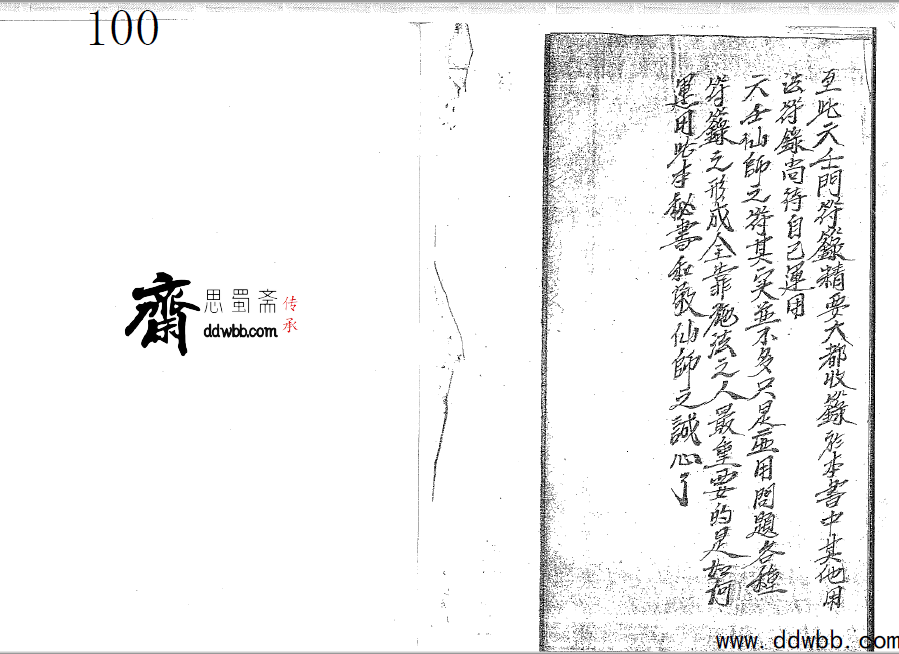 100
至此天壬門符籙精要大都收籙於本書中其他用
法符錄尚待自己運用
天壬仙師之符其实並不多只是應用問題各種
符籙之形成全靠施法之人最重要的是如何
運用此本秘書和敬仙師之誠心了
齋
思蜀斋
传承
ddwbb.com
www.ddwbb.com